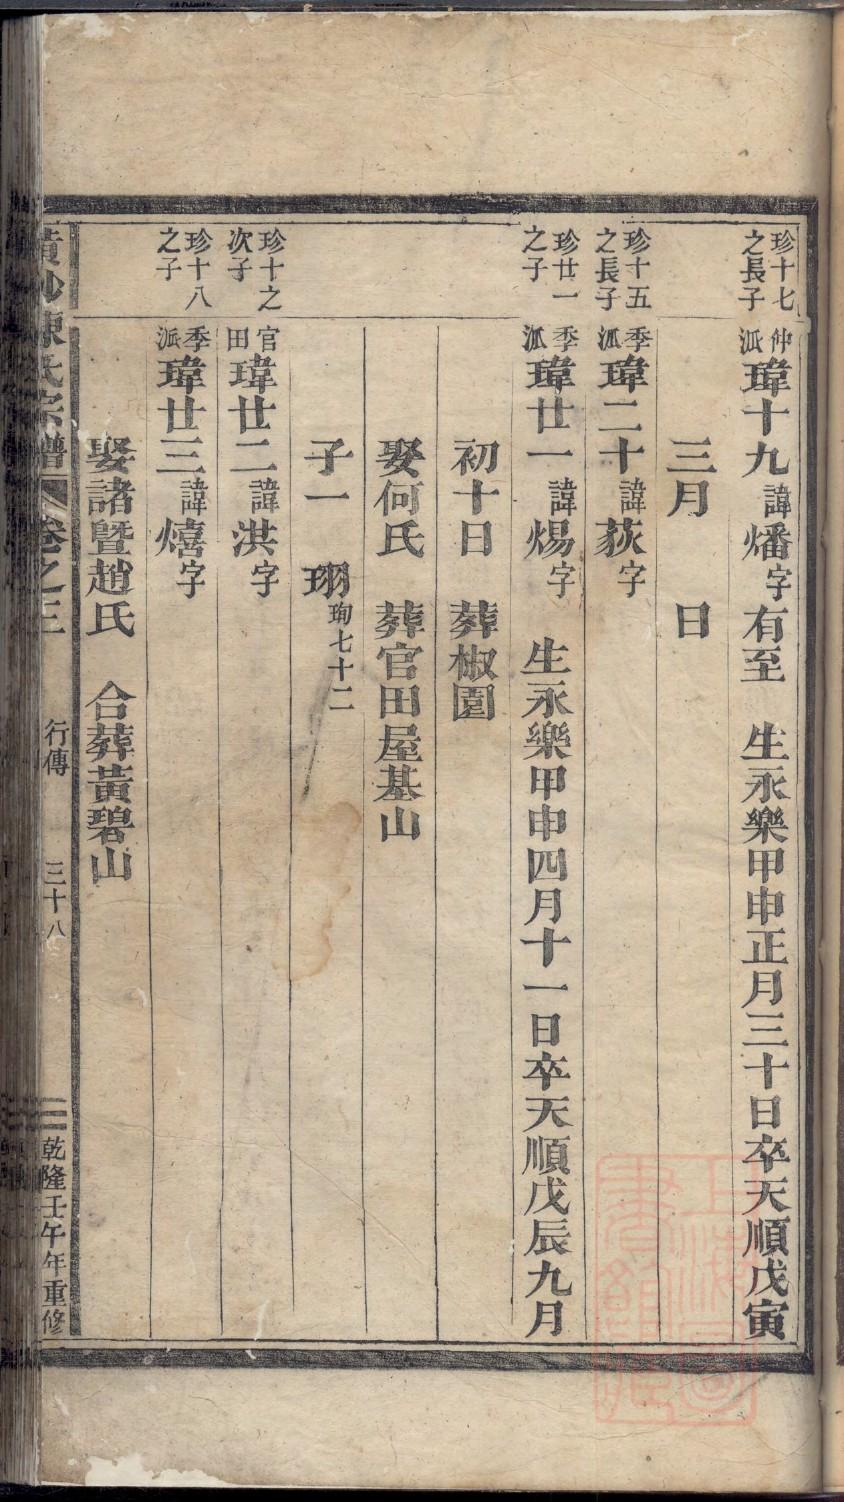 珍十七之長子
仲派瑋十九諱燔字有至　生永樂甲申正月三十日卒天順戊寅
三月　日
珍十五之長子
季派瑋二十諱荻字
珍廿一之子
季派瑋廿一諱焬字　生永樂甲申四月十一日卒天順戊辰九月
初十日　葬椒園
娶何氏　葬官田屋基山
子一　珝珣七十二
珍十之次子
官田瑋廿二諱淇字
珍十八之子
季派瑋廿三諱熺字
娶諸暨趙氏　合葬黃碧山
陳氏宗譜　卷之三　行傳　三十八　乾隆壬午年重修